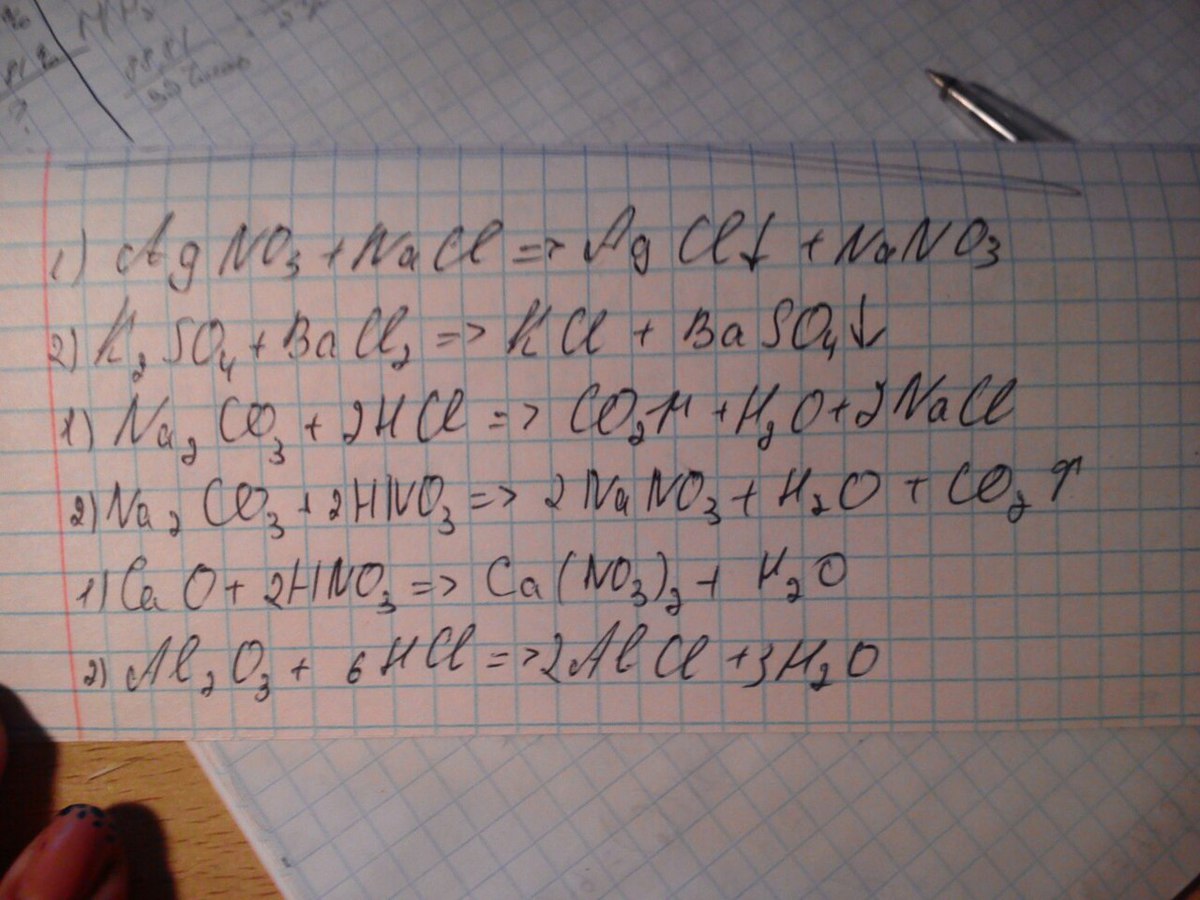 88,81
1) AgNO₃ + NaCl => AgCl↓ + NaNO₃
2) K₂SO₄ + BaCl₂ => KCl + BaSO₄↓
1) Na₂CO₃ + 2HCl => CO₂↑ + H₂O + 2NaCl
2) Na₂CO₃ + 2HNO₃ => 2NaNO₃ + H₂O + CO₂↑
1) CaO + 2HNO₃ => Ca(NO₃)₂ + H₂O
2) Al₂O₃ + 6HCl => 2AlCl + 3H₂O